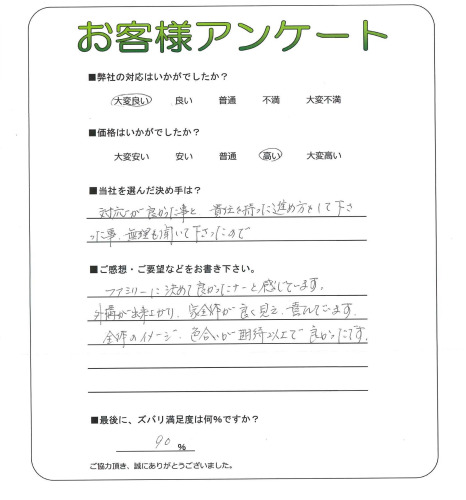 お客様アンケート
■弊社の対応はいかがでしたか?
大変良い 良い 普通 不満 大変不満
■価格はいかがでしたか?
大変安い 安い 普通 高い 大変高い
■当社を選んだ決め手は?
対応が良かった事と 責任を持った進め方をして下さ
った事、無理も聞いて下さったので
■ご感想・ご要望などをお書き下さい。
ファミリーに決めて良かったナーと感じています。
外構が出来上がり、家全体が良く見え、喜んでいます。
全体のイメージ、色合いが期待以上で良かったです。
■最後に、ズバリ満足度は何%ですか?
90 %
ご協力頂き、誠にありがとうございました。